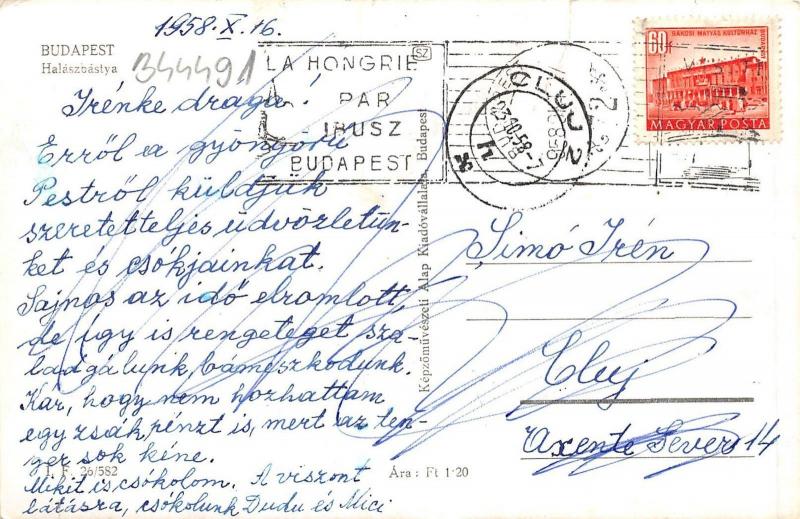 1958.X.16.
BUDAPEST
Halászbástya
344491
LA HONGRIE
PAR
IBUSZ
BUDAPEST
SZ
CLUJ 2
23.10.58
60f
RÁKOSI MÁTYÁS KULTÚRHÁZ
MAGYAR POSTA
Irénke draga!
Erről a gyöngörű
Pestről küldjük
szeretetteljes üdvözletün-
ket és csókjainkat.
Sajnos az idő elromlott
de így is rengeteget sza-
ladgálunk, bámészkodunk.
Kár, hogy nem hozhattam
egy zsák pénzt is, mert az ten-
ger sok kéne.
Mikit is csókolom. A viszont
látásra, csókolunk Dudu és Mici
Képzőművészeti Alap Kiadóvállalata, Budapest
Simó Irén
Cluj
Axente Sever 14
I. F. 26/582
Ára: Ft 1·20